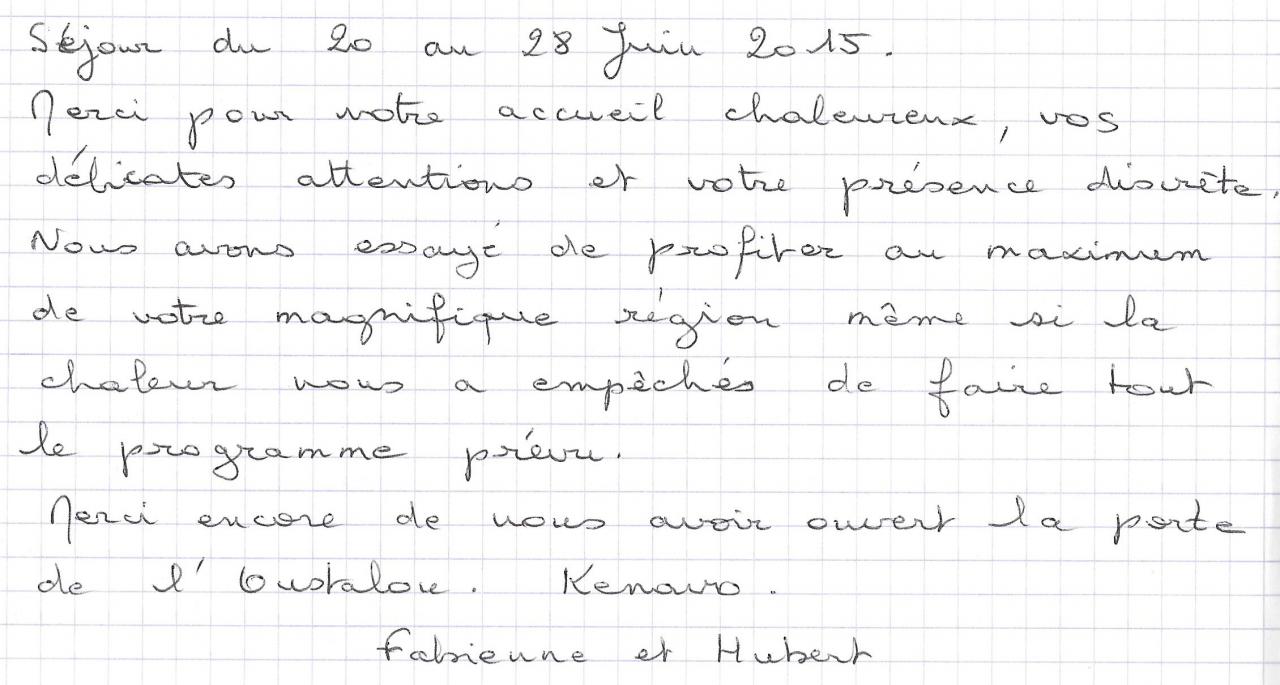 Séjour du 20 au 28 Juin 2015.
Merci pour votre accueil chaleureux, vos
délicates attentions et votre présence discrète.
Nous avons essayé de profiter au maximum
de votre magnifique région même si la
chaleur nous a empêchés de faire tout
le programme prévu.
Merci encore de nous avoir ouvert la porte
de l'Oustalou. Kenavo.
Fabienne et Hubert